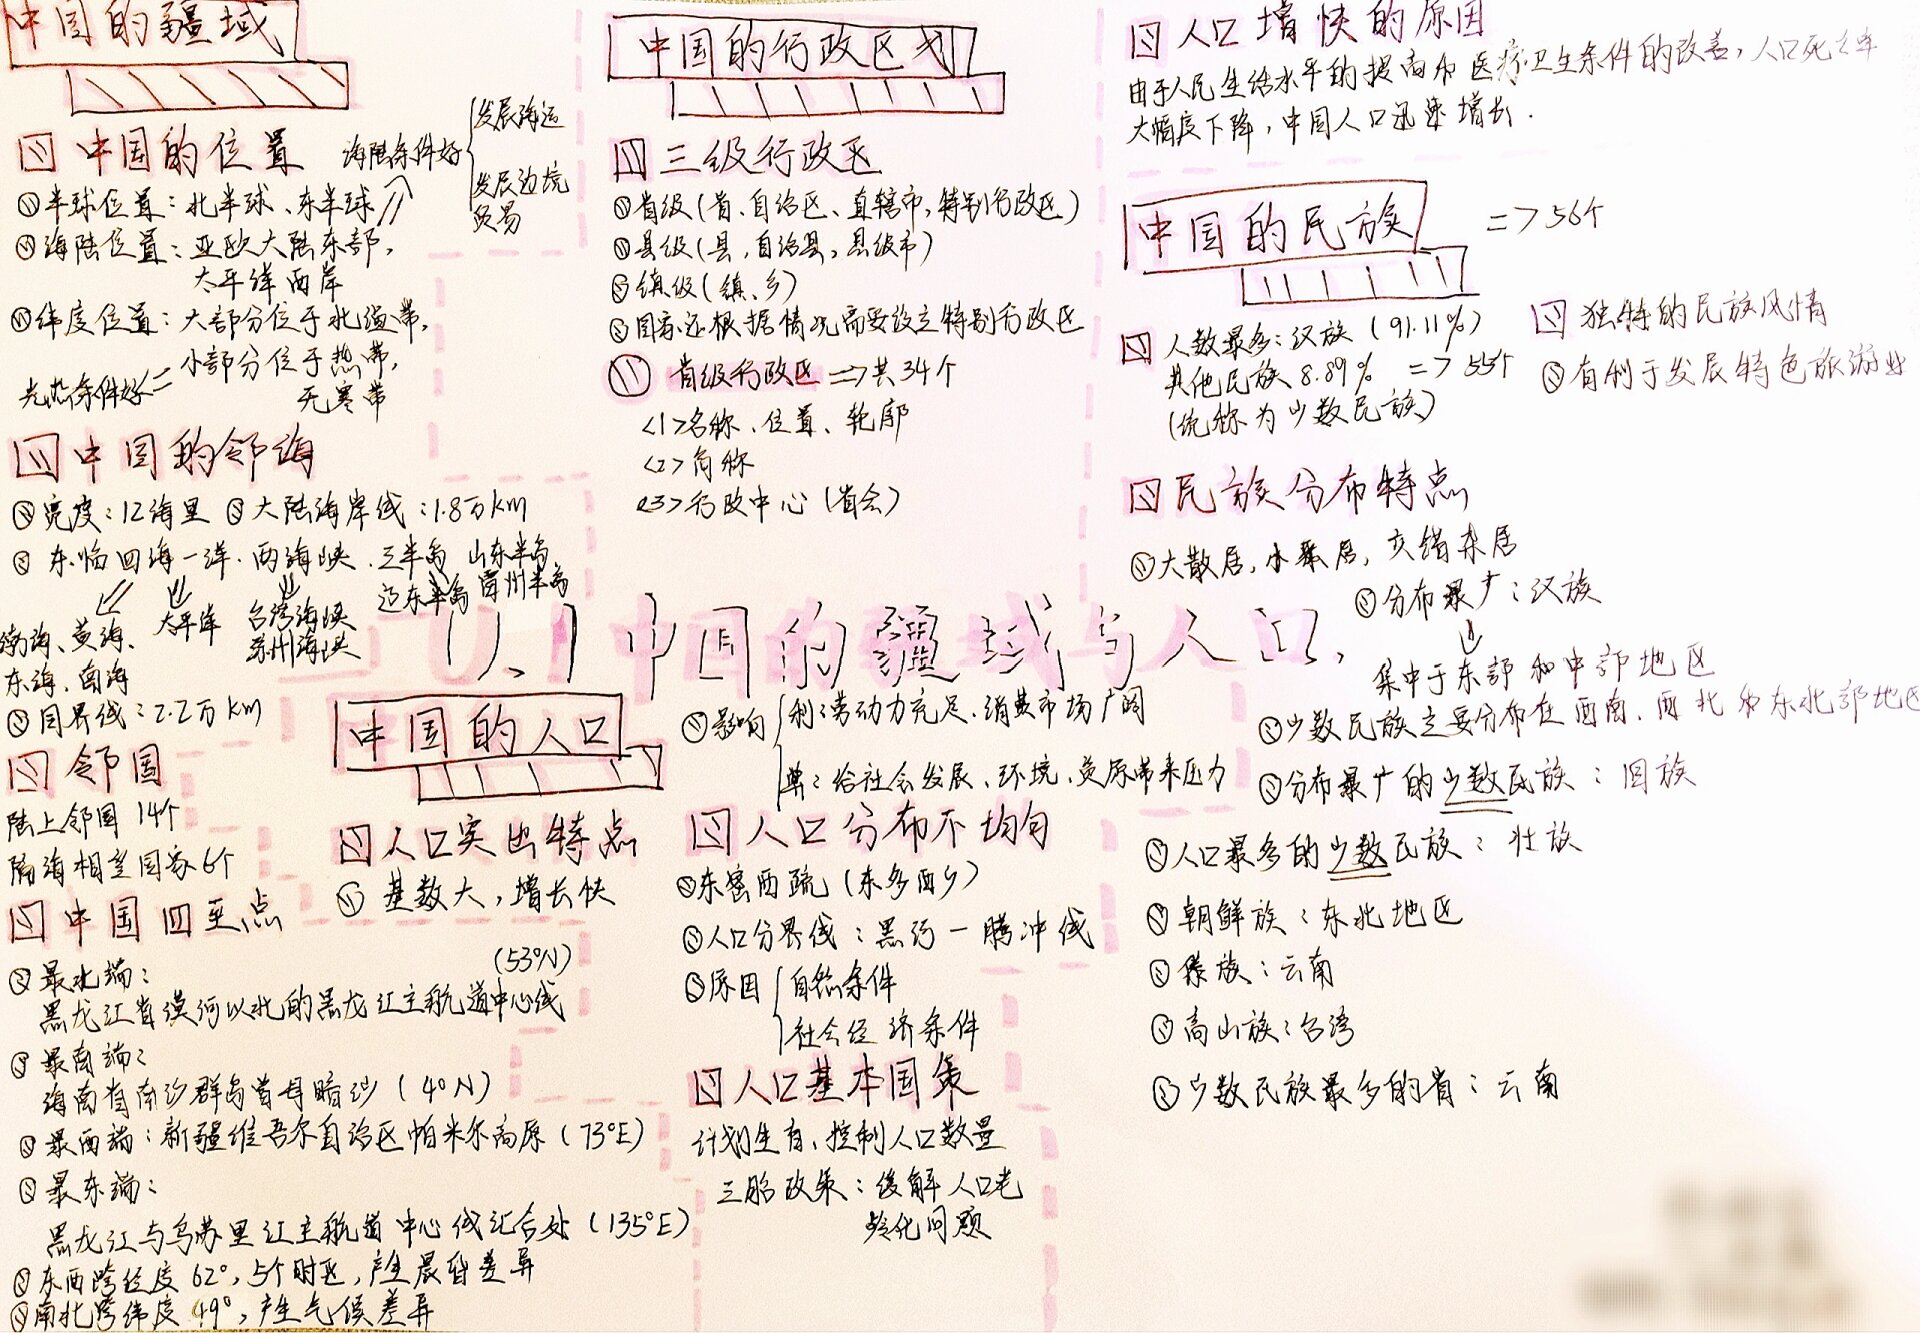 中国的疆域
中国的位置
半球位置：北半球、东半球
海陆条件好
发展海运
发展边境
贸易
海陆位置：亚欧大陆东部，
太平洋西岸
纬度位置：大部分位于北温带，
小部分位于热带，
无寒带
光热条件好
中国的邻海
宽度：12海里 大陆海岸线：1.8万km
东临四海一洋、两海峡、三半岛 山东半岛
辽东半岛 雷州半岛
渤海、黄海、
东海、南海
太平洋
台湾海峡
琼州海峡
国界线：2.2万km
邻国
陆上邻国 14个
隔海相望国家6个
中国四至点
最北端：
(53°N)
黑龙江省漠河以北的黑龙江主航道中心线
最南端：
海南省南沙群岛曾母暗沙（4°N）
最西端：新疆维吾尔自治区帕米尔高原（73°E）
最东端：
黑龙江与乌苏里江主航道中心线汇合处（135°E）
东西跨经度 62°，5个时区，产生晨昏差异
南北跨纬度 49°，产生气候差异
中国的行政区划
三级行政区
省级（省、自治区、直辖市，特别行政区）
县级（县，自治县，县级市）
镇级（镇、乡）
国家还根据情况需要设立特别行政区
省级行政区=>共34个
<1>名称、位置、轮廓
<2>简称
<3>行政中心（省会）
1.1 中国的疆域与人口
中国的人口
人口突出特点
基数大，增长快
影响
利：劳动力充足、消费市场广阔
弊：给社会发展、环境、资源带来压力
人口分布不均匀
东密西疏（东多西少）
人口分界线：黑河一腾冲线
原因
自然条件
社会经济条件
人口基本国策
计划生育、控制人口数量
三胎政策：缓解人口老
龄化问题
人口增快的原因
由于人民生活水平的提高和医疗卫生条件的改善，人口死亡率
大幅度下降，中国人口迅速增长．
中国的民族
=>56个
人数最多：汉族（91.11%）
其他民族8.89% =>55个
（统称为少数民族）
独特的民族风情
有利于发展特色旅游业
民族分布特点
大散居，小聚居，交错杂居
分布最广：汉族
集中于东部和中部地区
少数民族主要分布在西南、西北和东北部地区
分布最广的少数民族：回族
人口最多的少数民族：壮族
朝鲜族：东北地区
傣族：云南
高山族：台湾
少数民族最多的省：云南